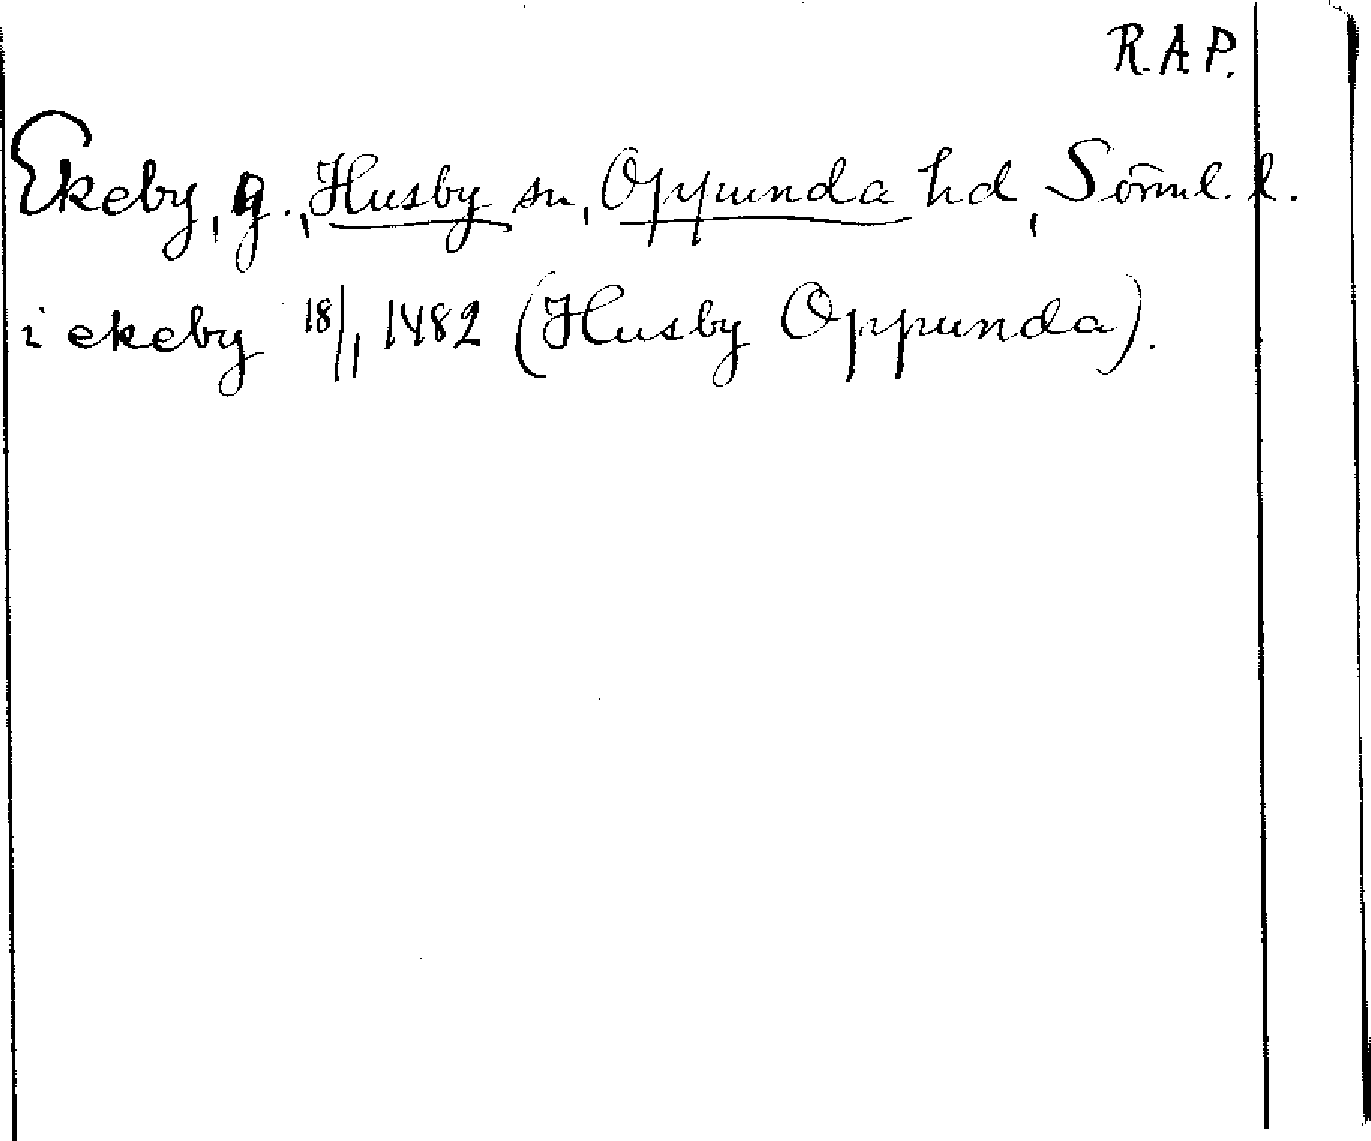 R.A.P.
Ekeby, g., Husby sn, Oppunda hd, Sörml. l.
i ekeby 18/1 1482 (Husby Oppunda).